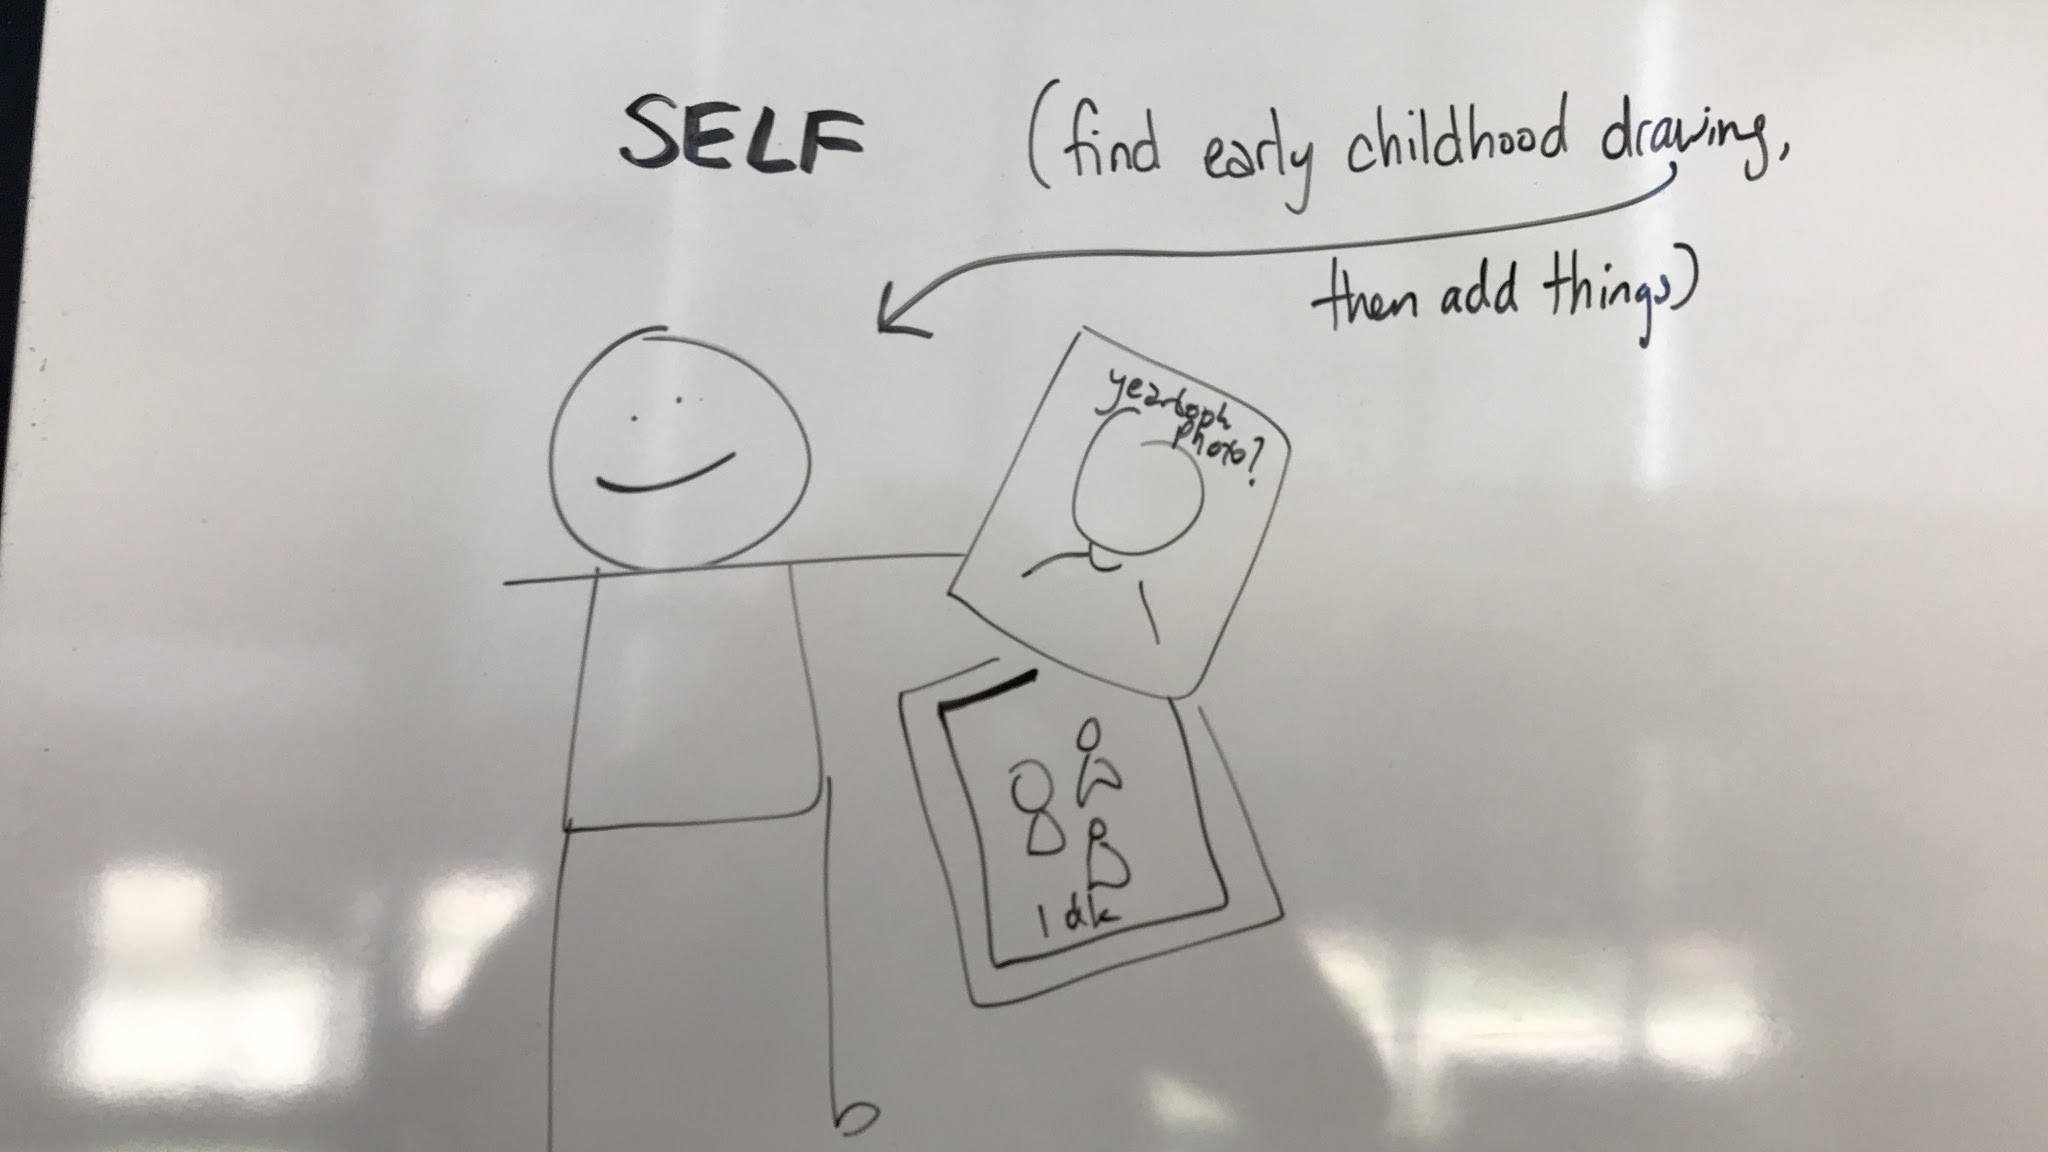 SELF
(find early childhood drawing,
then add things)
photo?
idk